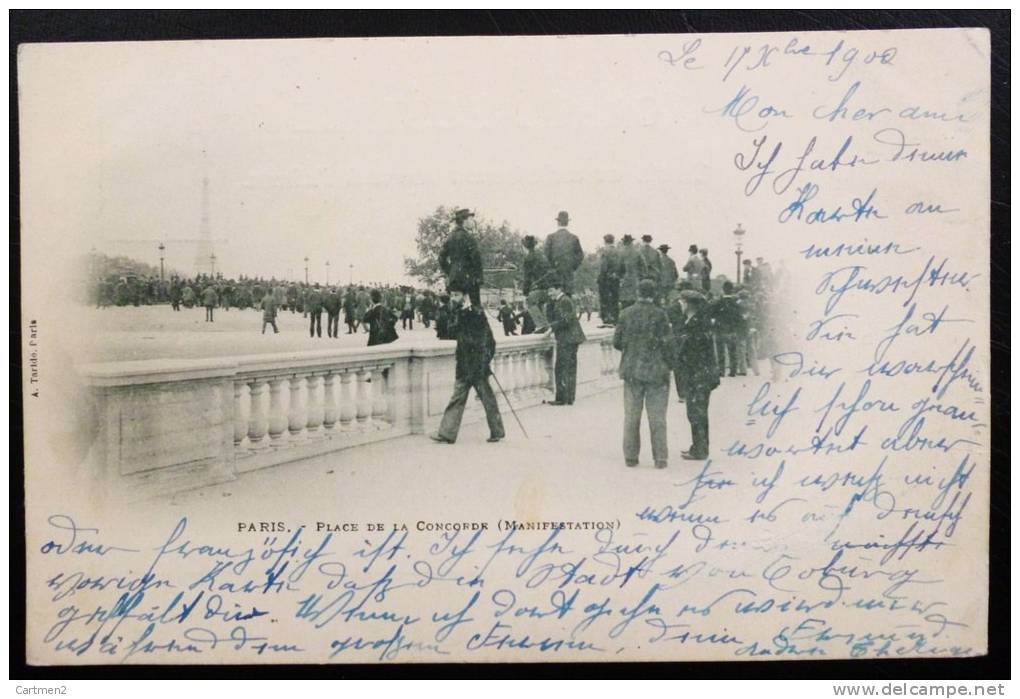 Le 17 Xbre 1900
Mon cher ami
Ich habe deine
Karte an
meine
Schwester
Sie hat
dir warschein
lich schon
wortet aber
ich weiß nicht
wenn es auf Deutsch
oder französich ist. Ich sehe durch deine
vorige Karte daß die Stadt von Coburg
gefält dir. Wenn ich dort gehe es wird
während den großen Ferien, dein Freund
A. Taride, Paris
PARIS. - PLACE DE LA CONCORDE (MANIFESTATION)
Cartmen2
www.delcampe.net